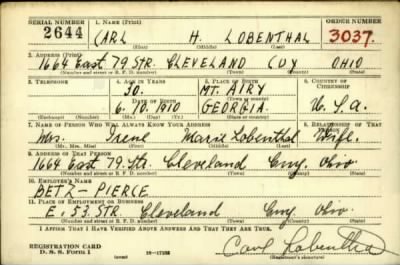 SERIAL NUMBER 1. NAME (Print) ORDER NUMBER
2644 CARL H. LOBENTHAL 3037
(First) (Middle) (Last)
2. ADDRESS (Print)
1664 East 79 STR. CLEVELAND CUY OHIO
(Number and street or R. F. D. number) (Town) (County) (State)
3. TELEPHONE 4. AGE IN YEARS 5. PLACE OF BIRTH 6. COUNTRY OF CITIZENSHIP
30. MT. AIRY
DATE OF BIRTH
6. 10. 1910 GEORGIA. U.S.A.
(Exchange) (Number) (Mo.) (Day) (Yr.) (State or country)
7. NAME OF PERSON WHO WILL ALWAYS KNOW YOUR ADDRESS 8. RELATIONSHIP OF THAT PERSON
Mrs. Irene Marie Lobenthal Wife.
(Mr., Mrs., Miss) (First) (Middle) (Last)
9. ADDRESS OF THAT PERSON
1664 East 79. Str. Cleveland Cuy. Ohio
(Number and street or R. F. D. number) (Town) (County) (State)
10. EMPLOYER'S NAME
BETZ - PIERCE
11. PLACE OF EMPLOYMENT OR BUSINESS
E. 53. STR. Cleveland Cuy Ohio.
(Number and street or R. F. D. number) (Town) (County) (State)
I AFFIRM THAT I HAVE VERIFIED ABOVE ANSWERS AND THAT THEY ARE TRUE.
REGISTRATION CARD
D. S. S. Form 1 16-17105 Carl Lobenthal
(Registrant's signature)